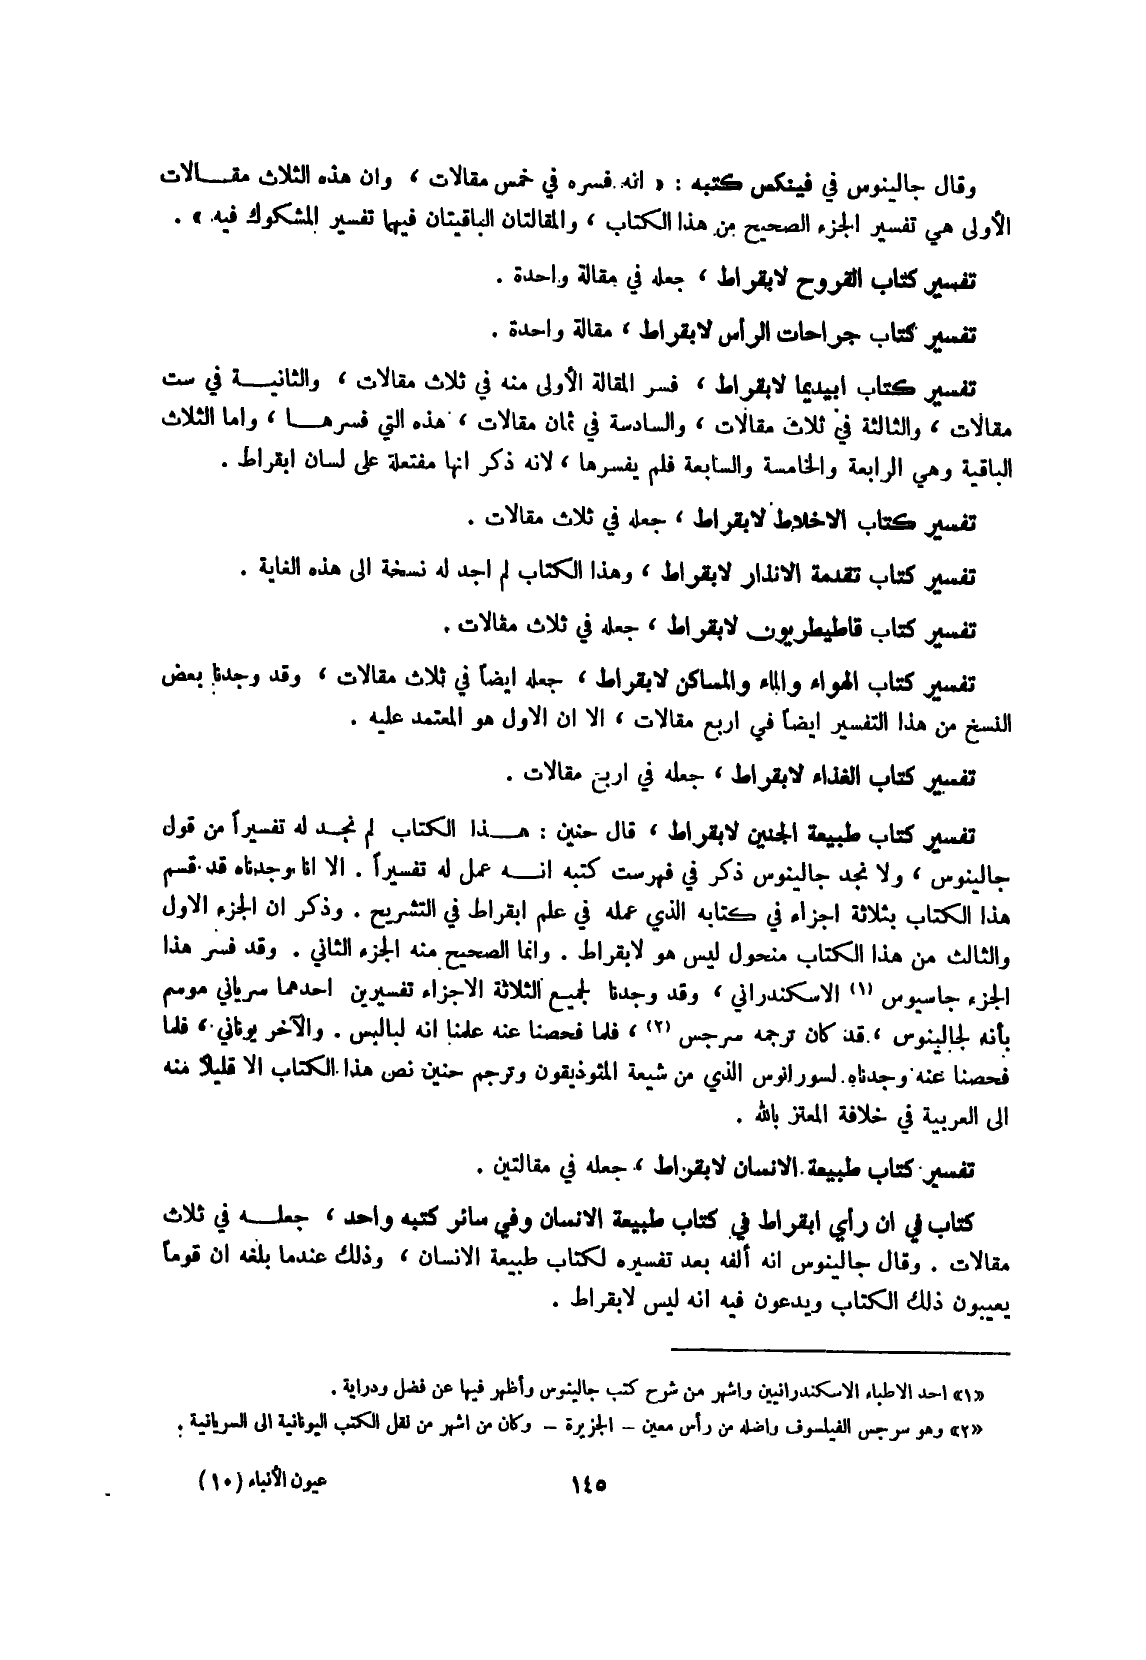 وقال جالينوس في فينكس كتبه : « انه فسره في خمس مقالات ، وان هذه الثلاث مقـــالات
الأولى هي تفسير الجزء الصحيح من هذا الكتاب ، والمقالتان الباقيتان فيها تفسير المشكوك فيه » .
تفسير كتاب القروح لابقراط ، جعله في مقالة واحدة .
تفسير كتاب جراحات الرأس لابقراط ، مقالة واحدة .
تفسير كتاب ابيديما لابقراط ، فسر المقالة الأولى منه في ثلاث مقالات ، والثانيـــة في ست
مقالات ، والثالثة في ثلاث مقالات ، والسادسة في ثمان مقالات ، هذه التي فسرهـــا ، واما الثلاث
الباقية وهي الرابعة والخامسة والسابعة فلم يفسرها ، لانه ذكر انها مفتعلة على لسان ابقراط .
تفسير كتاب الاخلاط لابقراط ، جعله في ثلاث مقالات .
تفسير كتاب تقدمة الانذار لابقراط ، وهذا الكتاب لم اجد له نسخة الى هذه الغاية .
تفسير كتاب قاطيطريون لابقراط ، جعله في ثلاث مقالات .
تفسير كتاب الهواء والماء والمساكن لابقراط ، جعله ايضاً في ثلاث مقالات ، وقد وجدنا بعض
النسخ من هذا التفسير ايضاً في اربع مقالات ، الا ان الاول هو المعتمد عليه .
تفسير كتاب الغذاء لابقراط ، جعله في اربع مقالات .
تفسير كتاب طبيعة الجنين لابقراط ، قال حنين : هـــذا الكتاب لم نجـد له تفسيراً من قول
جالينوس ، ولا نجد جالينوس ذكر في فهرست كتبه انـــه عمل له تفسيراً . الا انا وجدناه قد قسم
هذا الكتاب بثلاثة اجزاء في كتابه الذي عمله في علم ابقراط في التشريح . وذكر ان الجزء الاول
والثالث من هذا الكتاب منحول ليس هو لابقراط . وانما الصحيح منه الجزء الثاني . وقد فسر هذا
الجزء جاسيوس (١) الاسكندراني ، وقد وجدنا لجميع الثلاثة الاجزاء تفسيرين احدهما سرياني موسم
بأنه لجالينوس ، قد كان ترجمه سرجس (٢) ، فلما فحصنا عنه علمنا انه لبالبس . والآخر يوناني ، فلما
فحصنا عنه وجدناه لسورانوس الذي من شيعة المثوذيقون وترجم حنين نص هذا الكتاب الا قليلاً منه
الى العربية في خلافة المعتز بالله .
تفسير كتاب طبيعة الانسان لابقراط ، جعله في مقالتين .
كتاب في ان رأي ابقراط في كتاب طبيعة الانسان وفي سائر كتبه واحد ، جعلـــه في ثلاث
مقالات . وقال جالينوس انه ألفه بعد تفسيره لكتاب طبيعة الانسان ، وذلك عندما بلغه ان قوماً
يعيبون ذلك الكتاب ويدعون فيه انه ليس لابقراط .
«١» احد الاطباء الاسكندرانيين واشهر من شرح كتب جالينوس وأظهر فيها عن فضل ودراية .
«٢» وهو سرجس الفيلسوف واصله من رأس معين – الجزيرة – وكان من اشهر من نقل الكتب اليونانية الى السريانية .
١٤٥
عيون الأنباء (١٠)